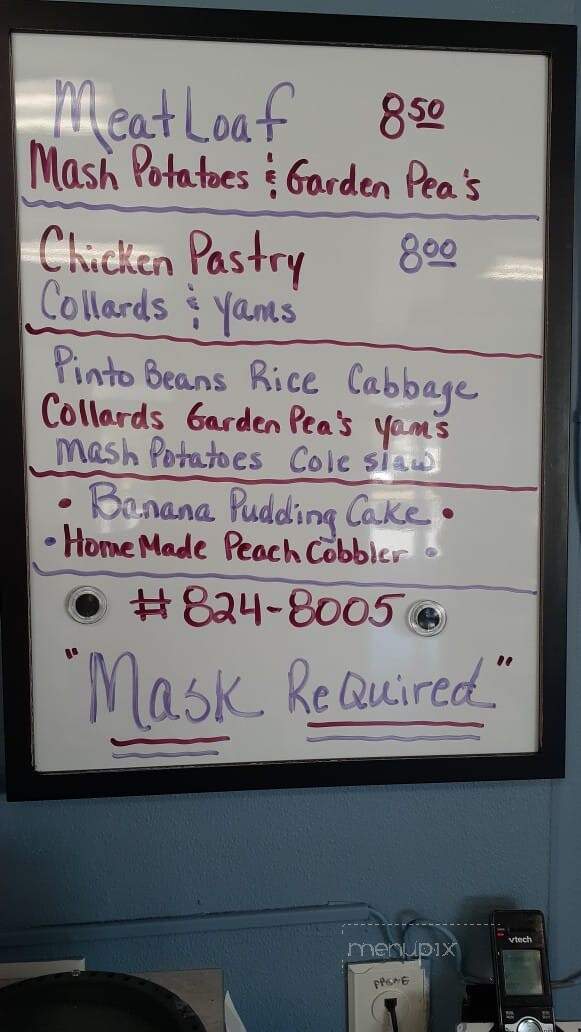 MeatLoaf 8 50
Mash Potatoes & Garden Pea's
Chicken Pastry 8 00
Collards & Yams
Pinto Beans Rice Cabbage
Collards Garden Pea's yams
Mash Potatoes Cole slaw
• Banana Pudding Cake •
• HomeMade Peach Cobbler •
#824-8005
"Mask ReQuired"
menupix
vtech
PHONE